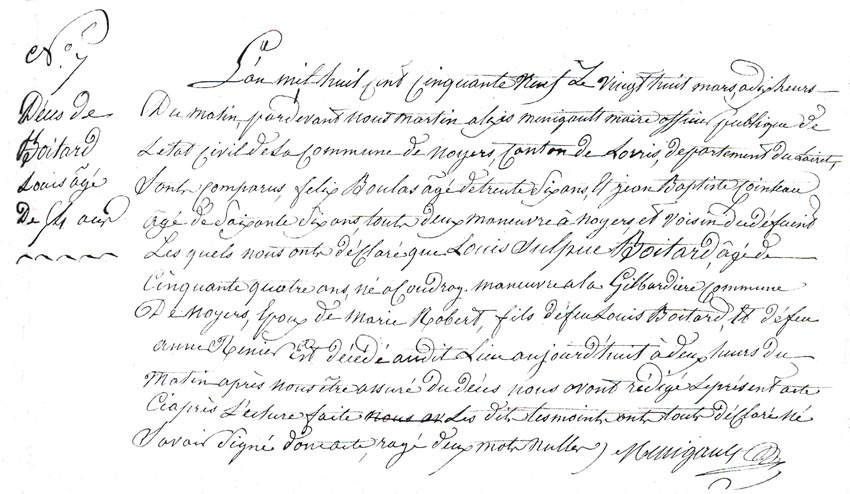 N.° 7
Décès de
Boitard
Louis âgé
De 54 ans
L'an mil huit cent cinquante neuf Le vingt huit mars, a dix heurs
Du matin, pardevant nous martin alexis menigault maire officier publique de
Letat civil de La Commune de Noyers, canton de Lorris, departement du Loiret,
Sont comparus, felix Boulas âgé de trente Six ans, Et jean Baptiste Cointeau
âgé de Soixante Six ans, tout deux manuvre à Noyers, et voisin du defunt
Les quels nous ont déclaré que Louis Sulpice Boitard, âgé de
Cinquante quatre ans, né a Coudray manuvre a la Gilbardiere Commune
De Noyers, Epoux de Marie Robert, fils défeu Louis Boitard, Et défeu
anne Renier Est décédé audit Lieu aujourd'huit à deux heurs du
Matin après nous être assuré du décès nous avont rédigé Le présent acte
Ciaprès Lecture faite nous av Les dits tesmoints ont tout déclaré né
Savoir Signé dont acte, rayé deux mots nulles) Menigault